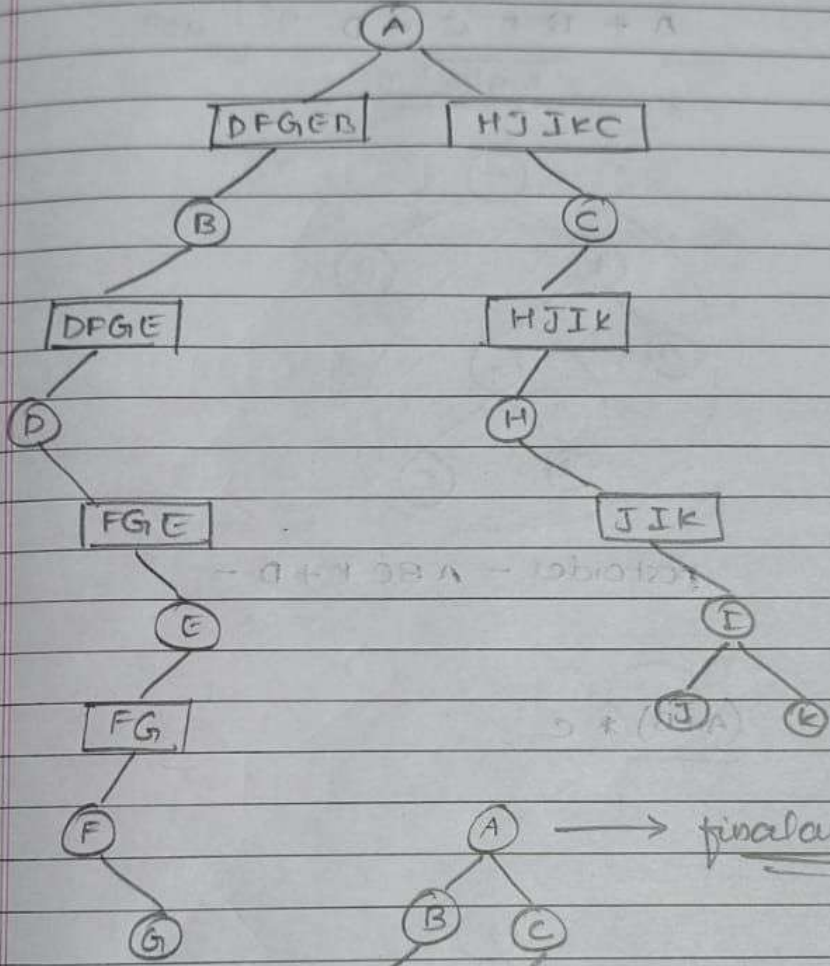 A
DFGEB HJIKC
B C
DFGE HJIK
D H
FGE JIK
E I
FG J K
F A
G B C